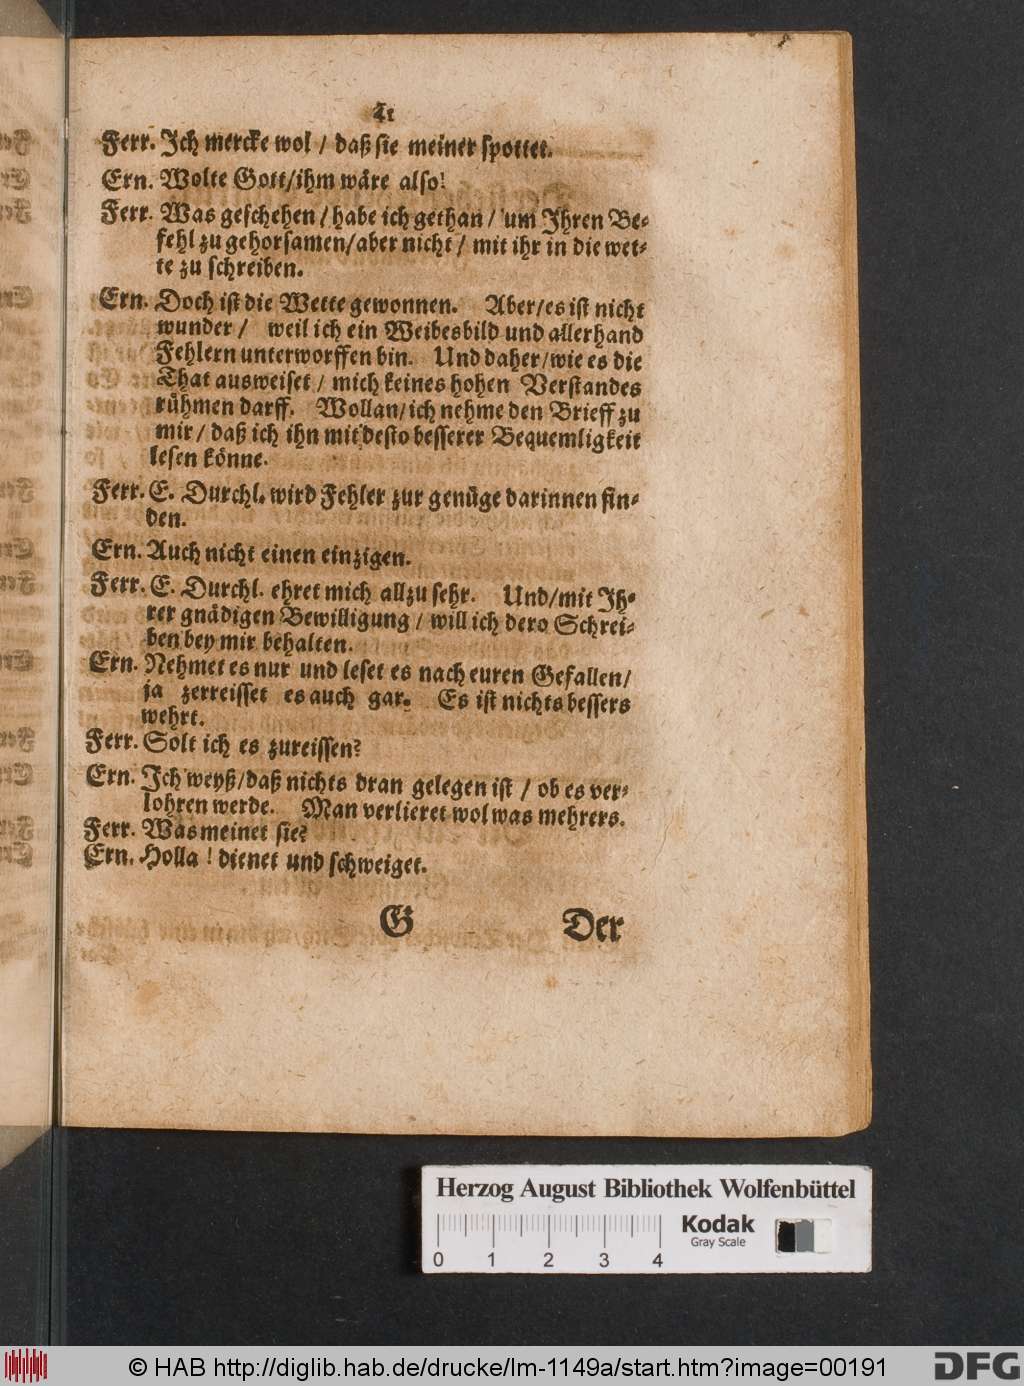 41
Ferr. Ich mercke wol / daß sie meiner spottet.
Ern. Wolte Gott/ihm wäre also!
Ferr. Was geschehen / habe ich gethan / um Ihren Be-
fehl zu gehorsamen/aber nicht / mit ihr in die wet-
te zu schreiben.
Ern. Doch ist die Wette gewonnen. Aber/es ist nicht
wunder / weil ich ein Weibesbild und allerhand
Fehlern unterworffen bin. Und daher/wie es die
That ausweiset / mich keines hohen Verstandes
rühmen darff. Wollan/ich nehme den Brieff zu
mir / daß ich ihn mit desto besserer Bequemligkeit
lesen könne.
Ferr. E. Durchl. wird Fehler zur genüge darinnen fin-
den.
Ern. Auch nicht einen einzigen.
Ferr. E. Durchl. ehret mich allzu sehr. Und/mit Ih-
rer gnädigen Bewilligung / will ich dero Schrei-
ben bey mir behalten.
Ern. Nehmet es nur und leset es nach euren Gefallen/
ja zerreisset es auch gar. Es ist nichts bessers
wehrt.
Ferr. Solt ich es zureissen?
Ern. Ich weyß/daß nichts dran gelegen ist / ob es ver-
lohren werde. Man verlieret wol was mehrers.
Ferr. Was meinet sie?
Ern. Holla ! dienet und schweiget.
G Der
Herzog August Bibliothek Wolfenbüttel
Kodak
Gray Scale
0 1 2 3 4
© HAB http://diglib.hab.de/drucke/lm-1149a/start.htm?image=00191
DFG